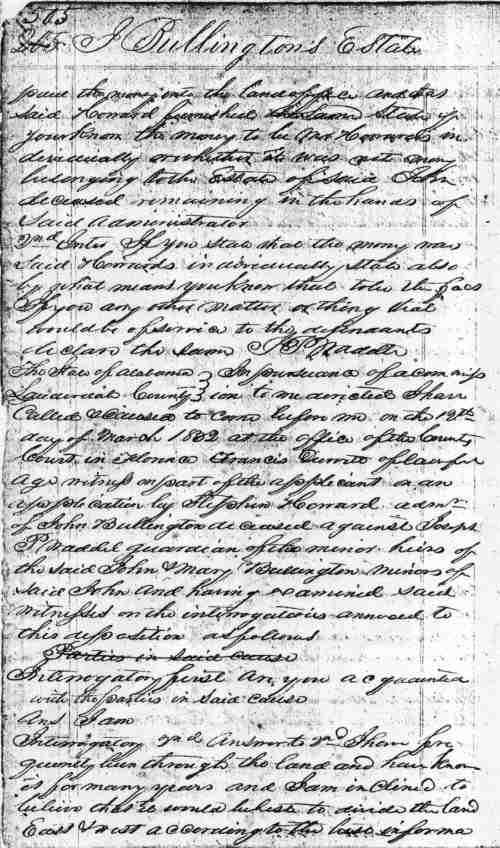 365
J Bullington's Estate
paid the money into the land office and has
said Howard furnished State if
you know the money to be Howards in
dividually or whether it was not money
belonging to the Estate of said John
deceased remaining in the hands of
said administrator
2nd Inter If you state that the money was
said Howards individually state also
by what means you know that to be the fact
If you any other matter or thing that
would be of service to the defendants
declare the same J P Waddle
The State of alabama } In pursuance of a commiss
Lauderdale County } ion to me directed I have
Called & Caused to Come before me on the 12th
day of March 1832 at the office of the County
Court in Florence Francis of lawful
age witness on part of the applicant on an
application by Stephen Howard adm
of John Bullington deceased against Joseph
P Waddle guardian of the minor heirs of
the said John & Mary Bullington minors of
said John And having examined said
witness on the interrogatories annexed to
this deposition as follows
Parties in said cause
Interrogatory first Are you acquainted
with the parties in said cause
Ans I am
Interrogatory 2nd Answer to 2nd I have fre
quently been through the land and have known
it for many years and I am inclined to
believe that it would be best to divide the land
East & West according to the best informa